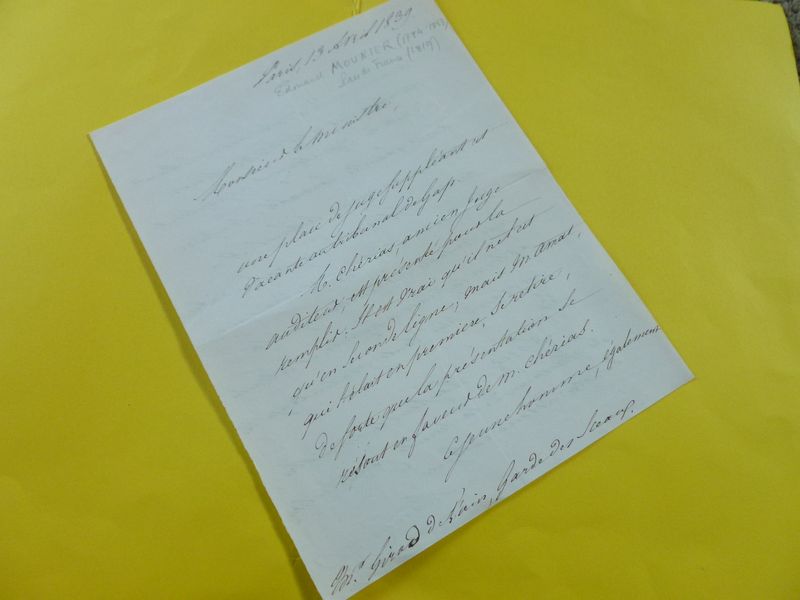 Paris, 13 avril 1839
Edouard MOUNIER (1784-1843)
Pair de France (1819)
Monsieur le Ministre,
une place de juge suppléant est
vacante au tribunal de Gap.
M. Chérias, ancien juge
auditeur, est présenté pour la
remplir. Il est vrai qu'il ne l'est
qu'en seconde ligne, mais M. Amat,
qui l'était en première, se retire,
de sorte que la présentation se
résout en faveur de M. Chérias.
Ce jeune homme, également
Mr. Girod de l'Ain, Garde des Sceaux.